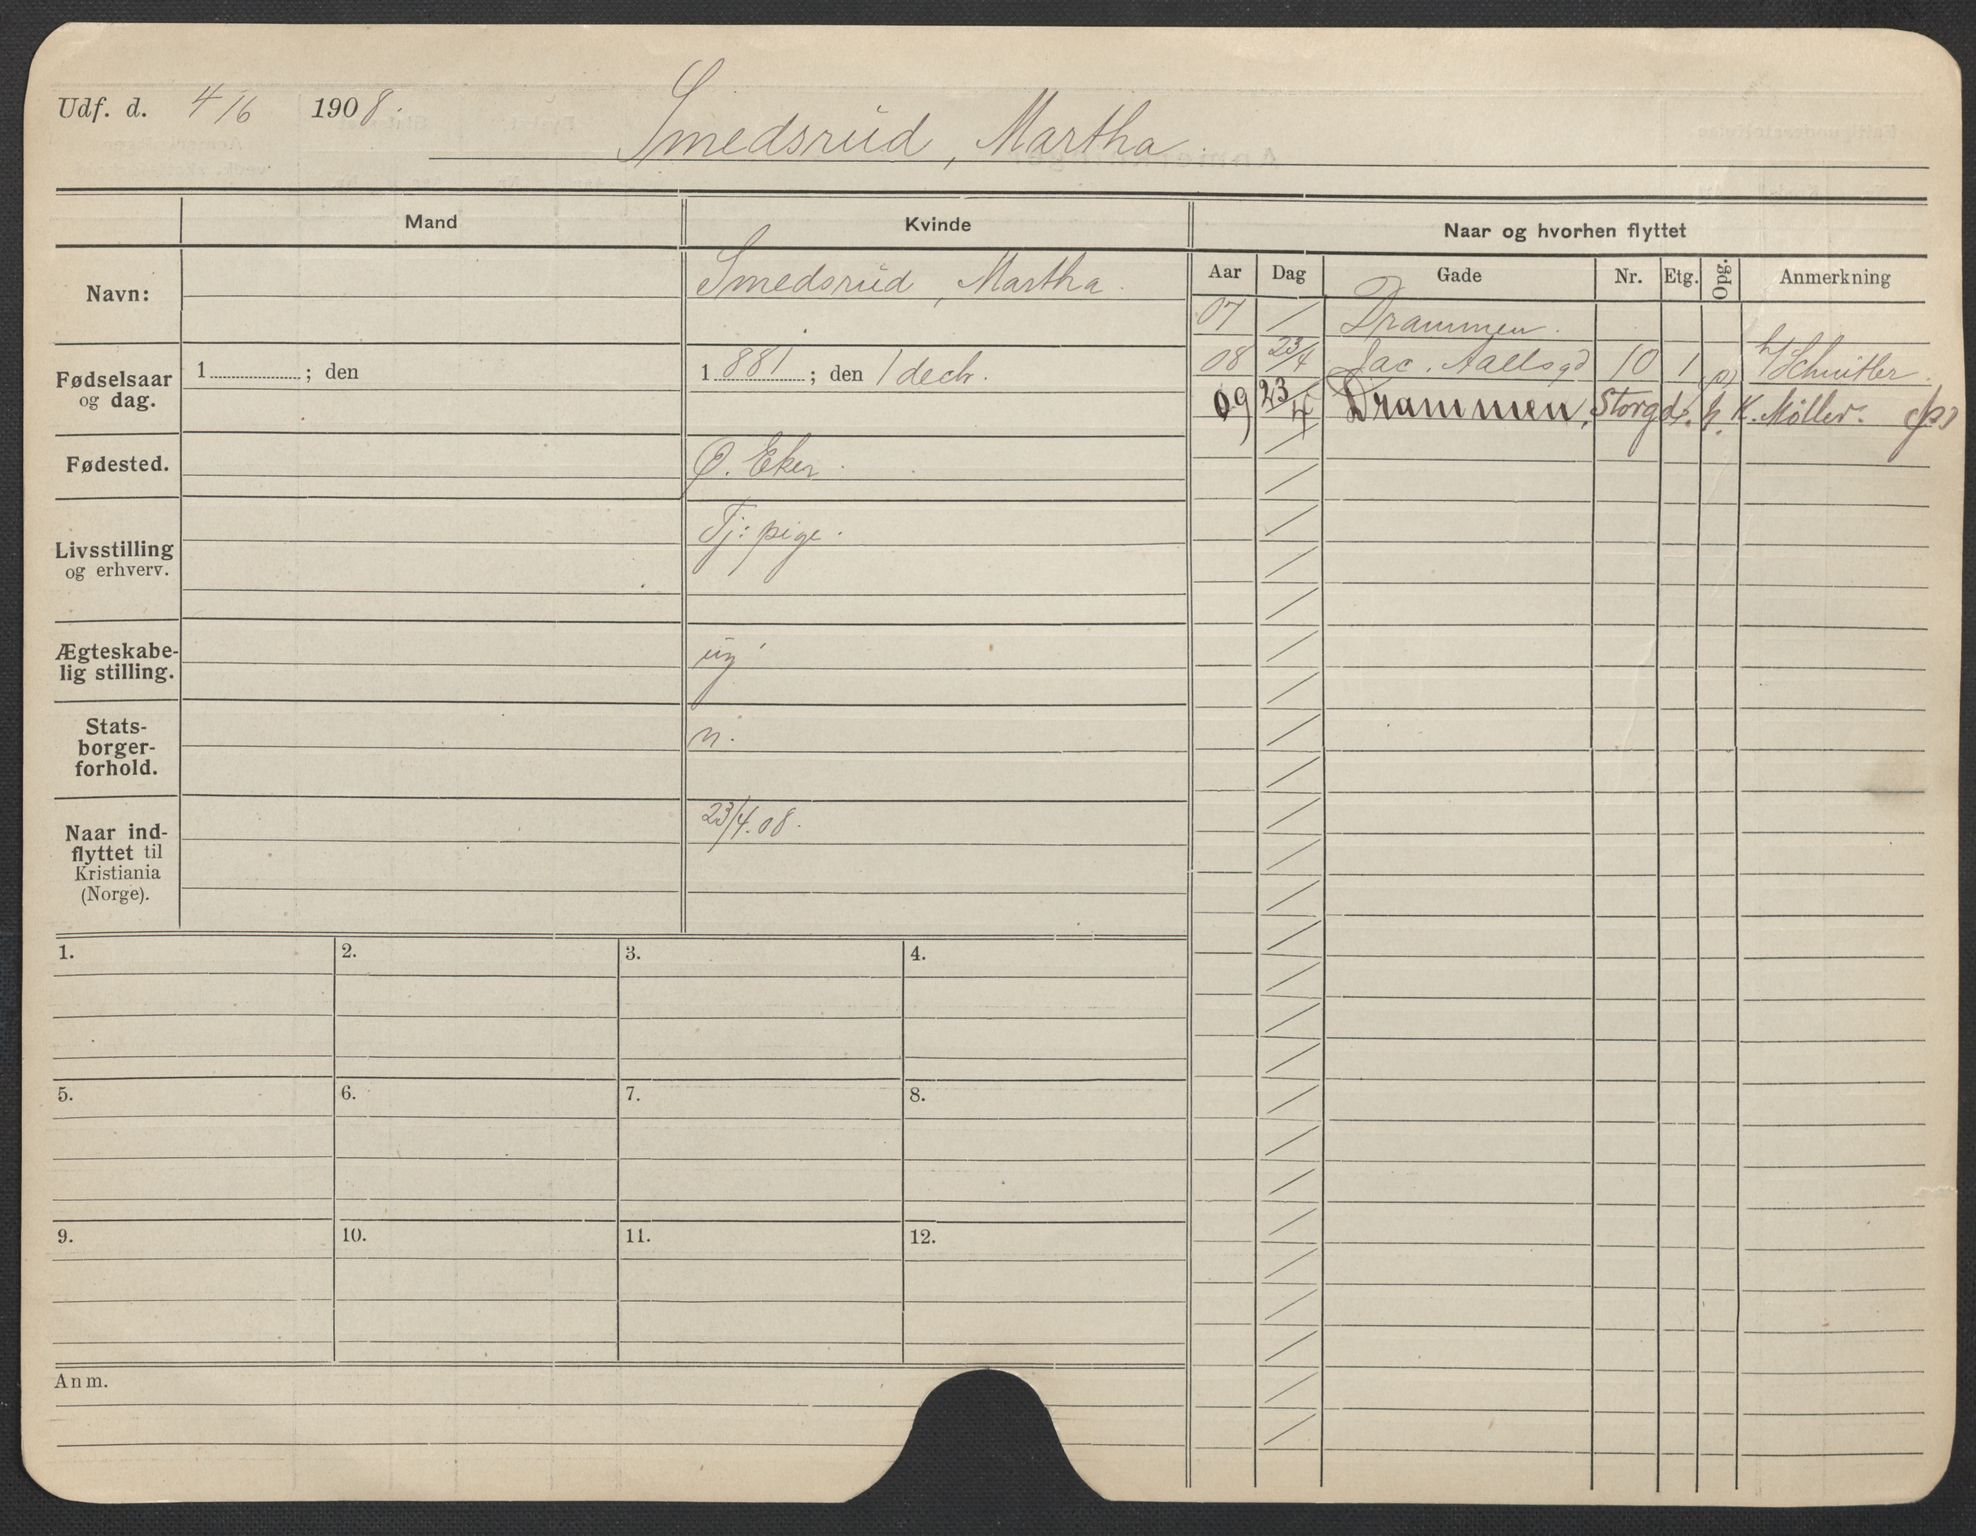 Udf. d. 4/6 1908.
Smedsrud, Martha.
Mand
Kvinde
Naar og hvorhen flyttet
Navn:
Smedsrud, Martha.
Aar Dag Gade Nr. Etg. Opg. Anmerkning
07 / Drammen.
08 23/4 Jac. Aallsgd 10 1 h/ Schnitler.
09 23/4 Drammen, Storgd. h. K. Møller.
Fødselsaar
og dag.
1 ; den
1881 ; den 1 decbr.
Fødested.
Ø. Eker.
Livsstilling
og erhverv.
Tj: pige.
Ægteskabe-
lig stilling.
ug
Stats-
borger-
forhold.
n.
Naar ind-
flyttet til
Kristiania
(Norge).
23/4.08.
1. 2. 3. 4.
5. 6. 7. 8.
9. 10. 11. 12.
Anm.